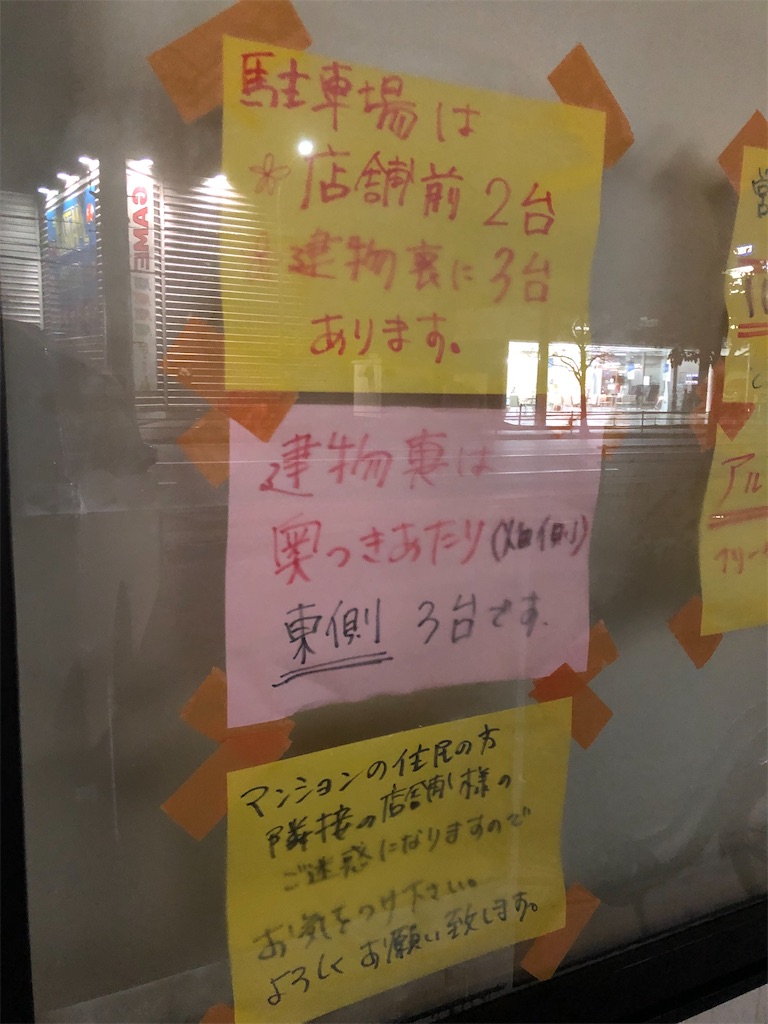 駐車場は
＊店舗前 2台
＊建物裏に3台
あります。
建物裏は
奥つきあたり
東側 3台です.
マンションの住民の方
隣接の店舗様の
ご迷惑になりますので
お気をつけ下さい。
よろしくお願い致します。
GAME
営
アル
フリー